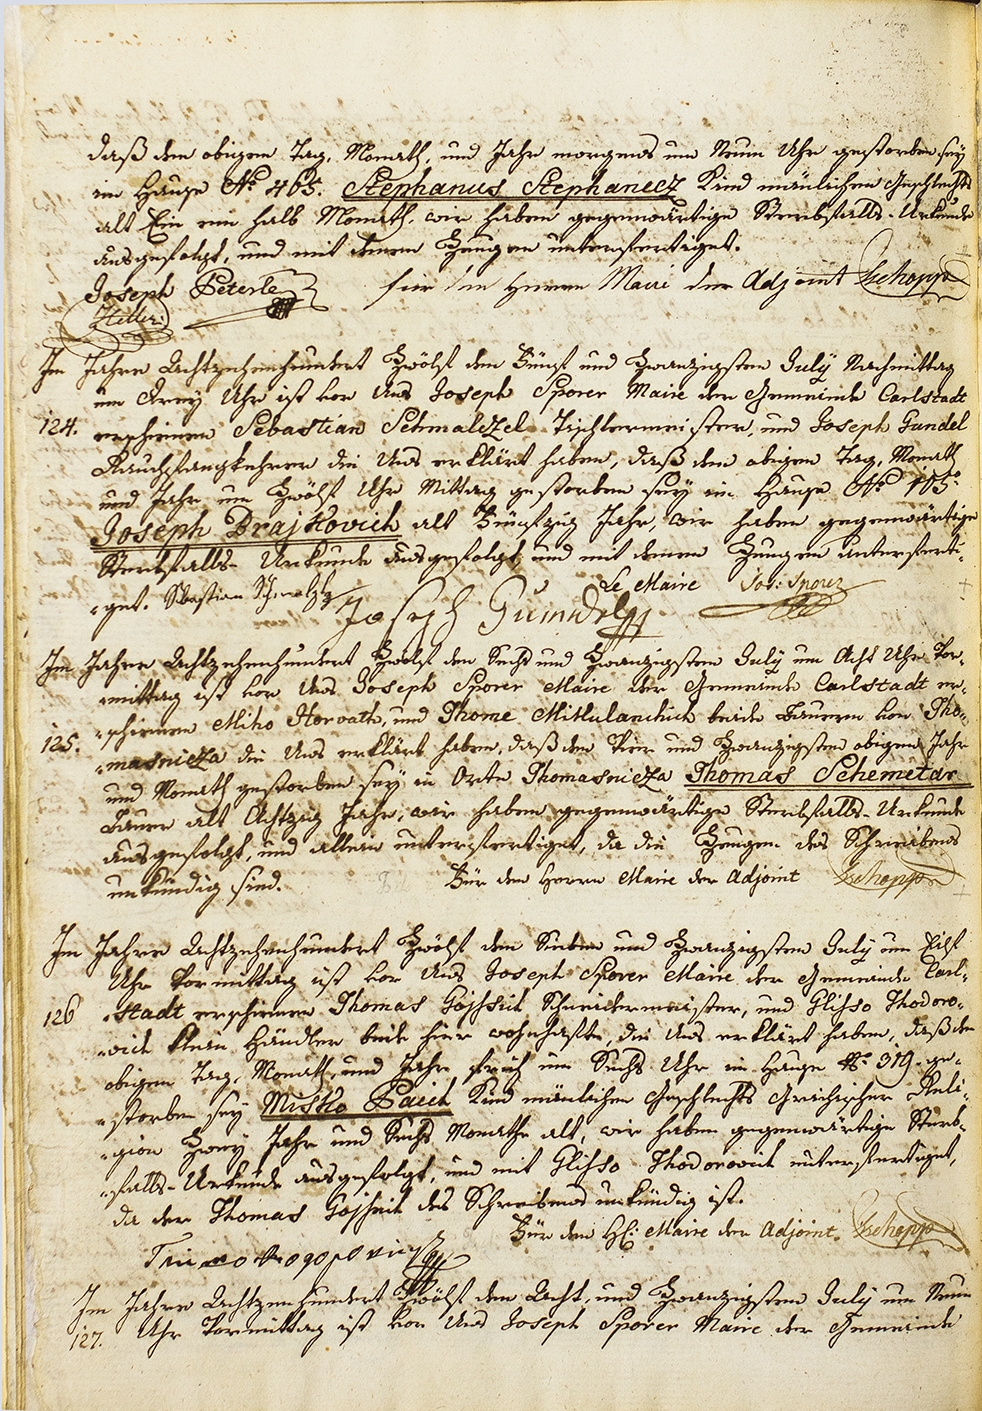 daß den obigen Tag, Monath, und Jahr morgens um Neun Uhr gestorben sey
im Hause No 465. Stephanus Stephanecz Kind mänlichen Geschlechts
alt Ein ein halb Monath. wir haben gegenwärtige Sterbfalls-Urkunde
ausgefolgt, und mit denen Zeugen unterfertiget.
Joseph Peterle für den Herrn Mairi der Adjoint Tschopp
Im Jahre Achtzehenhundert Zwölf den Fünf und Zwanzigsten July Nachmittag
um Drey Uhr ist vor Uns Joseph Sporer Maire der Gemeinde Carlstadt
124. erschienen Sebastian Schmalczel Tischlermeister, und Joseph Gundel
Rauchfangkehrer die Uns erklärt haben, daß den obigen Tag, Monath
und Jahr um Zwölf Uhr Mittag gestorben sey im Hause No
Joseph Drajkovich alt Fünfzig Jahr, wir haben gegenwärtige
Sterbfalls-Urkunde ausgefolgt und mit denen Zeugen unterferti-
-get. Sebastian Schmalzl Joseph Gündel Le Maire Jos: Sporer
Im Jahre Achtzehenhundert Zwölf den Sechs und Zwanzigsten July um Acht Uhr Vor-
-mittag ist vor Uns Joseph Sporer Maire der Gemeinde Carlstadt er-
-schienen Miho Horvath, und Thome beide Bauern von Tho-
125. -masnicza die Uns erklärt haben, daß den Vier und Zwanzigsten obigen Jahr
und Monath gestorben sey in Orte Thomasnicza Thomas Schemetar
Bauer alt Achtzig Jahr, wir haben gegenwärtige Sterbfalls-Urkunde
ausgefolgt, und allein unterfertiget, da die Zeugen des Schreibens
unkündig sind. Für den Herrn Maire der Adjoint Tschopp
Im Jahre Achtzehenhundert Zwölf den Sieben und Zwanzigsten July um Eilf
Uhr Vormittag ist vor Uns Joseph Sporer Maire der Gemeinde Carl-
126 -stadt erschienen Thomas Gojssich Schneidermeister, und Glisso Thodoro-
-vich klein Händler beide hier wohnhafte, die Uns erklärt haben, daß den
obigen Tag, Monath, und Jahr früh um Sechs Uhr im Hause No 319. ge-
-storben sey Misko Paich Kind mänlichen Geschlechts Grichischer Reli-
-gion Zwey Jahr und Sechs Monathe alt, wir haben gegenwärtige Sterb-
-falls-Urkunde ausgefolgt, und mit Glisso Thodorovich unterfertiget,
da der Thomas Gojssich des Schreibens unkündig ist.
Für den H: Maire der Adjoint Tschopp
Im Jahre Achtzenhundert Zwölf den Acht, und Zwanzigsten July um Neun
127. Uhr Vormittag ist vor Uns Joseph Sporer Maire der Gemeinde